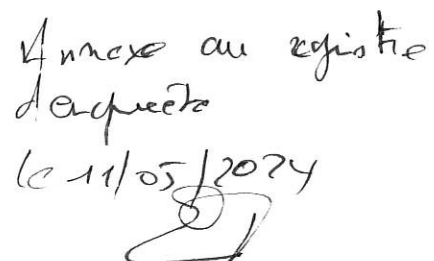 Annexe au registre
d'enquête
le 11/05/2024